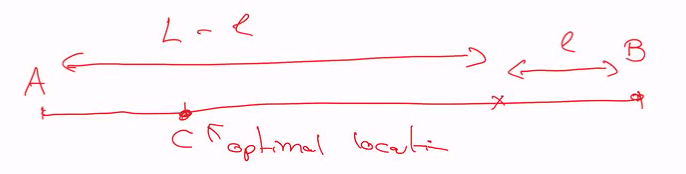 L - l
l
A
B
C
optimal locati